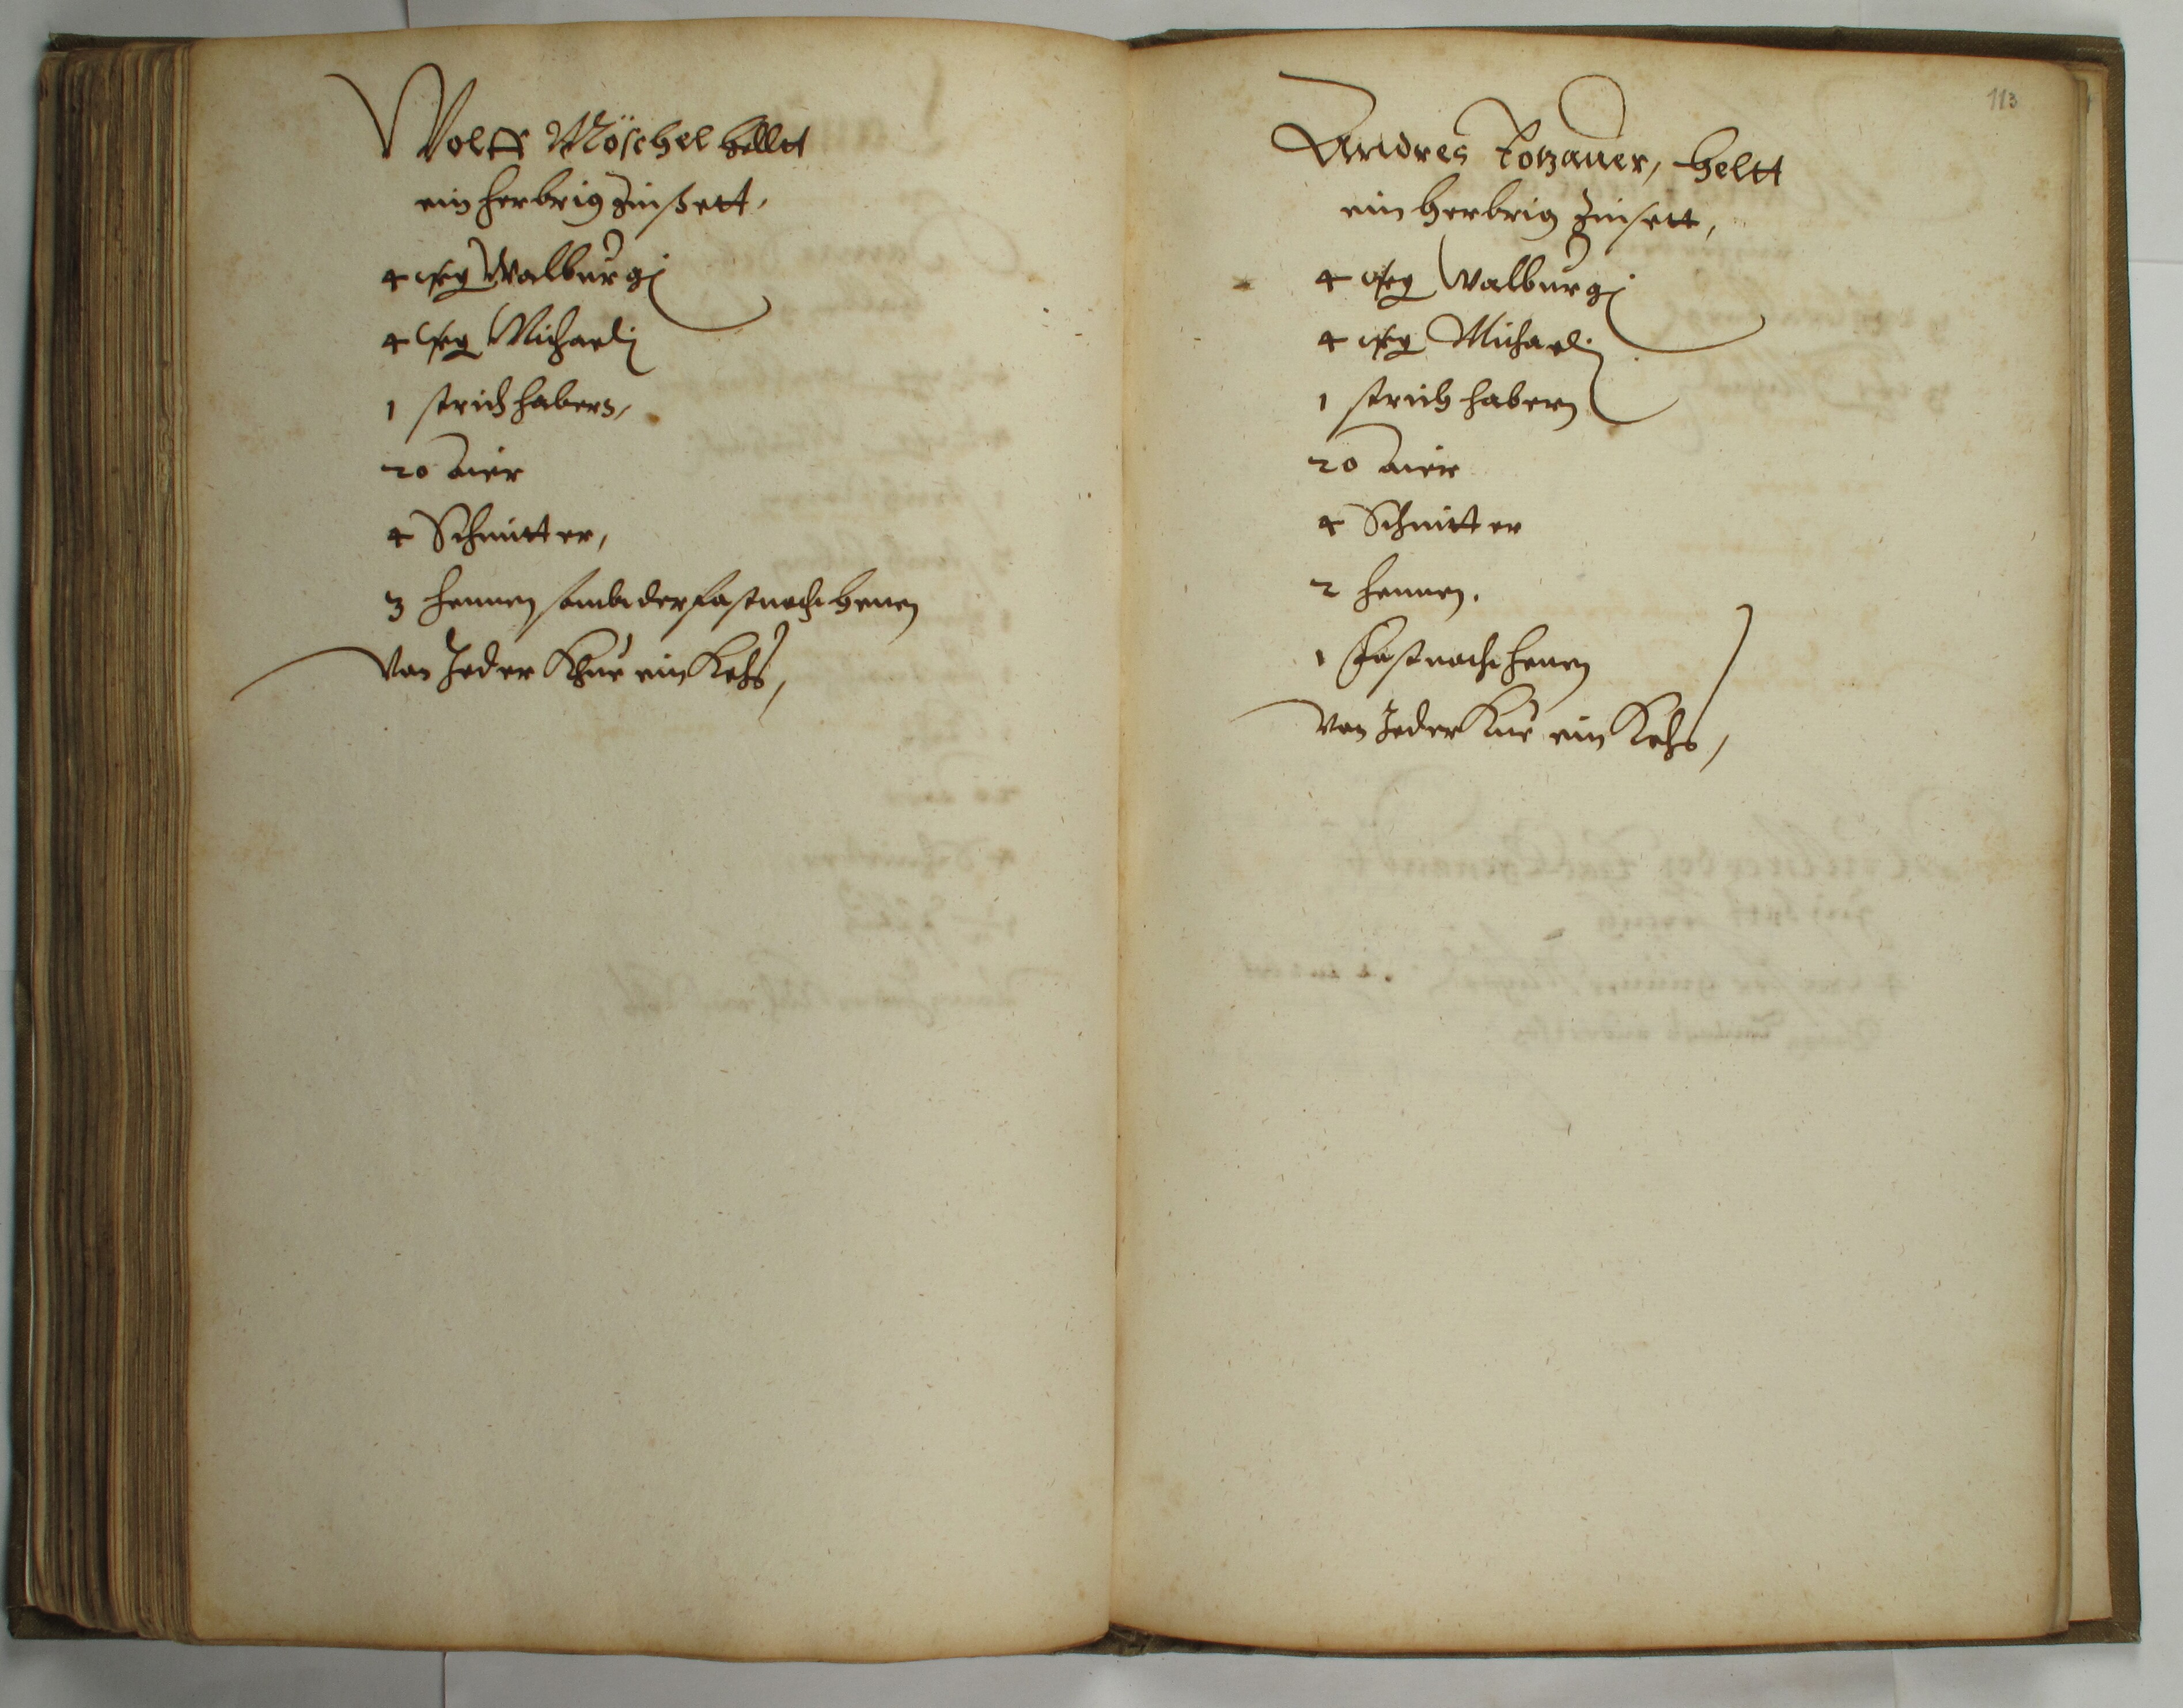 Wolff Möschel helltt
ein herbrig Zinsett,
4 gr Walburgi
4 gr Michaeli
1 strich habern,
20 aier
4 Schnitter,
3 hennen sambt der fastnacht henen
Von Jeder Khue ein Kehs,
113
Andres Totzauer, heltt
ein herbrig Zinsett,
4 gr Walburgi
4 gr Michaeli
1 strich habern
20 aier
4 Schnitter
2 hennen.
1 Fastnacht henen
Von Jeder Kue ein Kehs,